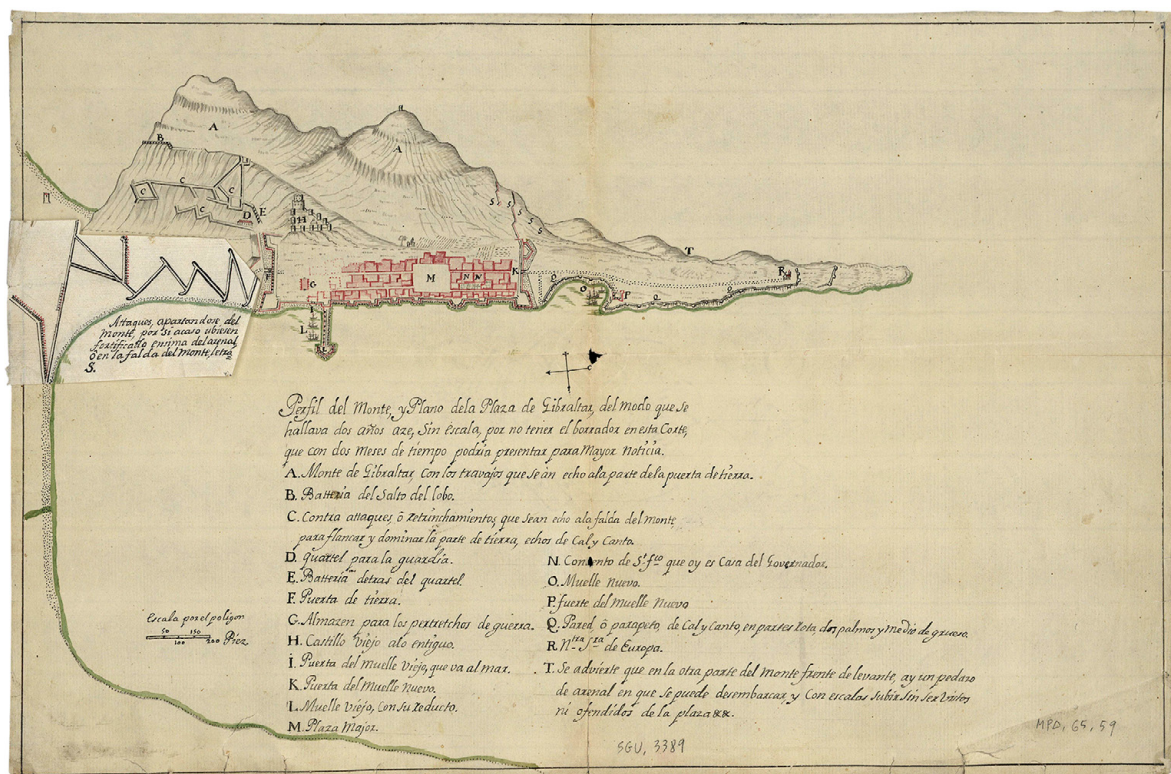 A
A
B
C
C
C
C
D
E
H
F
G
M
N N
K
S S S S S
T
T
R
Q
O
Q
Q
P
I
L
Attaques, apartandose del
monte, por si acaso ubiesen
fortificatto ensima del arenal
ô en la falda del monte, letra
S.
Perfil del Monte, y Plano dela Plaza de Gibraltar, del modo que se
hallava dos años aze, Sin Escala, por no tener el borrador en esta Corte,
que con dos meses de tiempo podria presentar para Mayor Noticia.
A. Monte de Gibraltar, Con los travajos que se àn echo ala parte dela puerta de tierra.
B. Batteria del Salto del lobo.
C. Contra attaques, ô retrinchamientos, que sean echo ala falda del monte,
para flancar y dominar la parte de tierra, echos de Cal y Canto.
D. quartel para la guardia.
E. Batteria detras del quartel
F. Puerta de tierra.
G. Almazen para los pertretchos de guerra.
H. Castillo viejo alo entiguo.
I. Puerta del Muelle viejo, que va al mar.
K. Puerta del Muelle Nuevo.
L. Muelle viejo, Con su reducto.
M. Plaza Major.
N. Combento de Sⁿ. f.ᶜᵒ que oy es Casa del Governador.
O. Muelle Nuevo.
P. fuerte del Muelle Nuevo
Q. Pared ô parapeto, de Cal y Canto, en partes rota dos palmos y medio de grueso.
R. N.ᵗʳᵃ S.ʳᵃ de Europa.
T. Se advierte que en la otra parte del monte frente de levante, ay un pedazo
de arenal en que se puede desembarcar, y Con escalas subir sin ser vistos
ni ofendidos de la plaza &&.
Escala por el poligon
50 150
100 200 Piez.
SGU, 3389
MPD, 65, 59